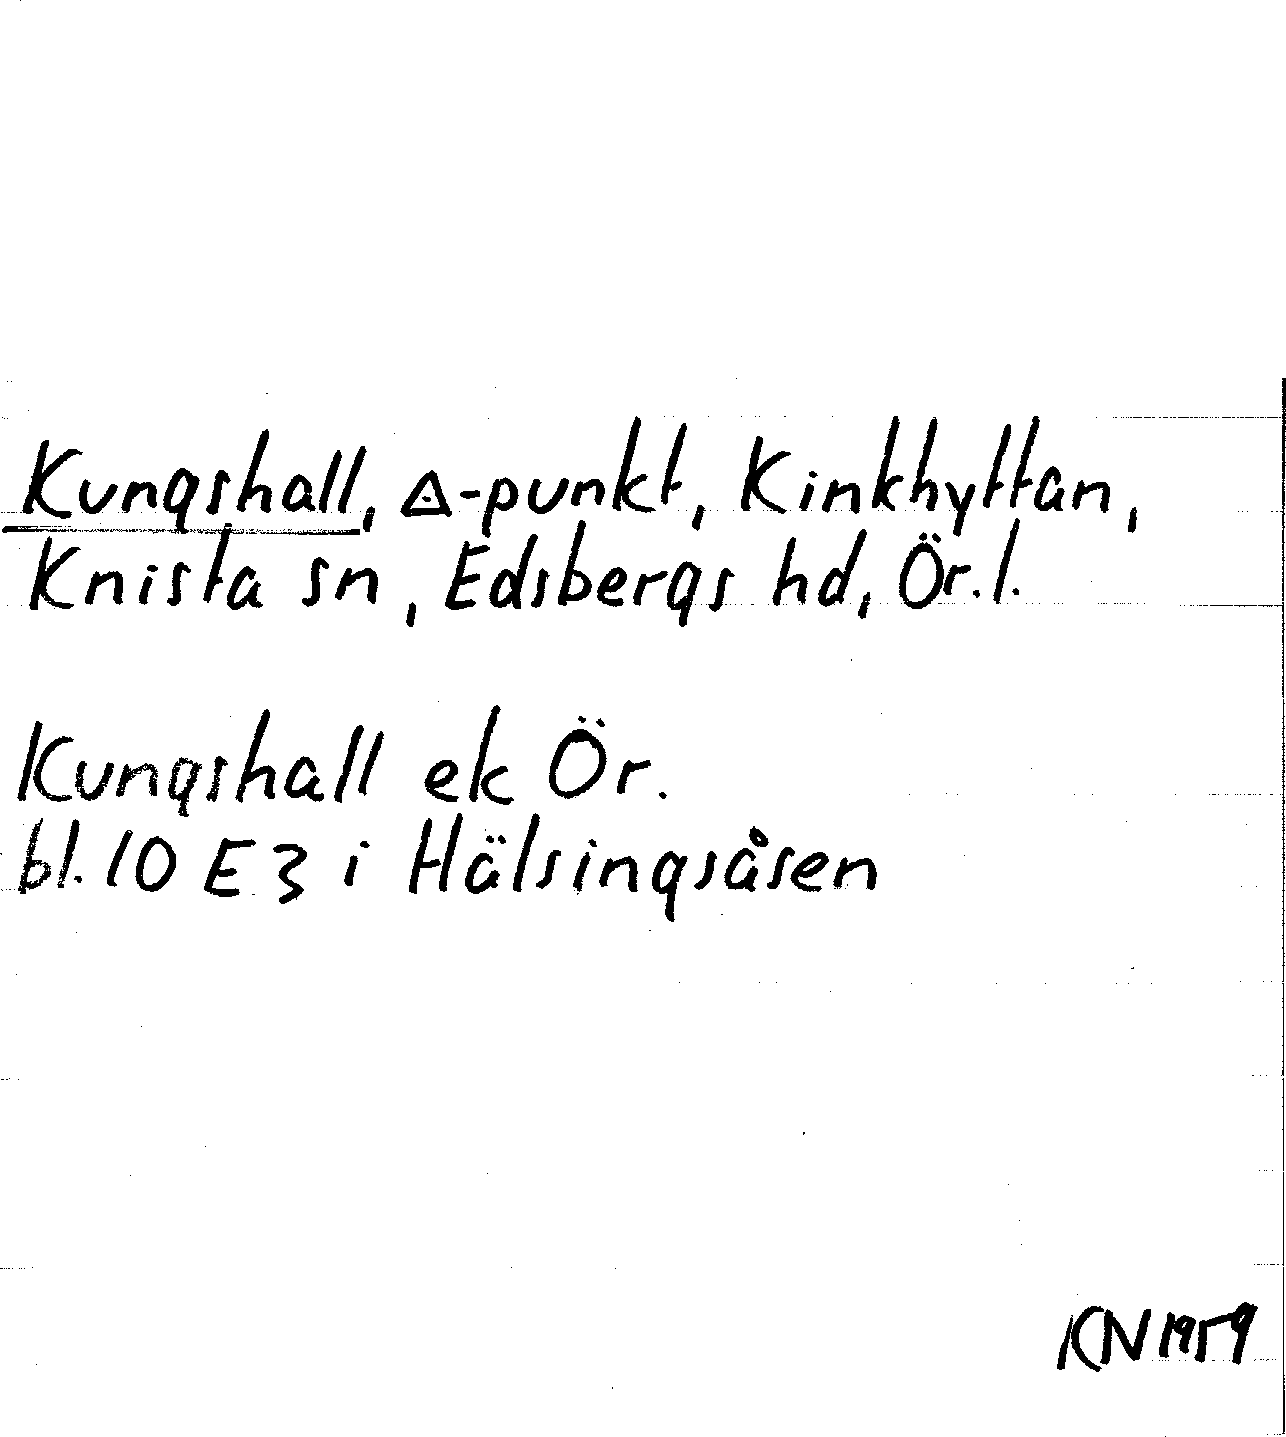 Kungshall, △-punkt, Kinkhyttan,
Knista sn, Edsbergs hd, Ör.l.
Kungshall ek Ör.
bl. 10 E 3 i Hälsingsåsen
KN 1959